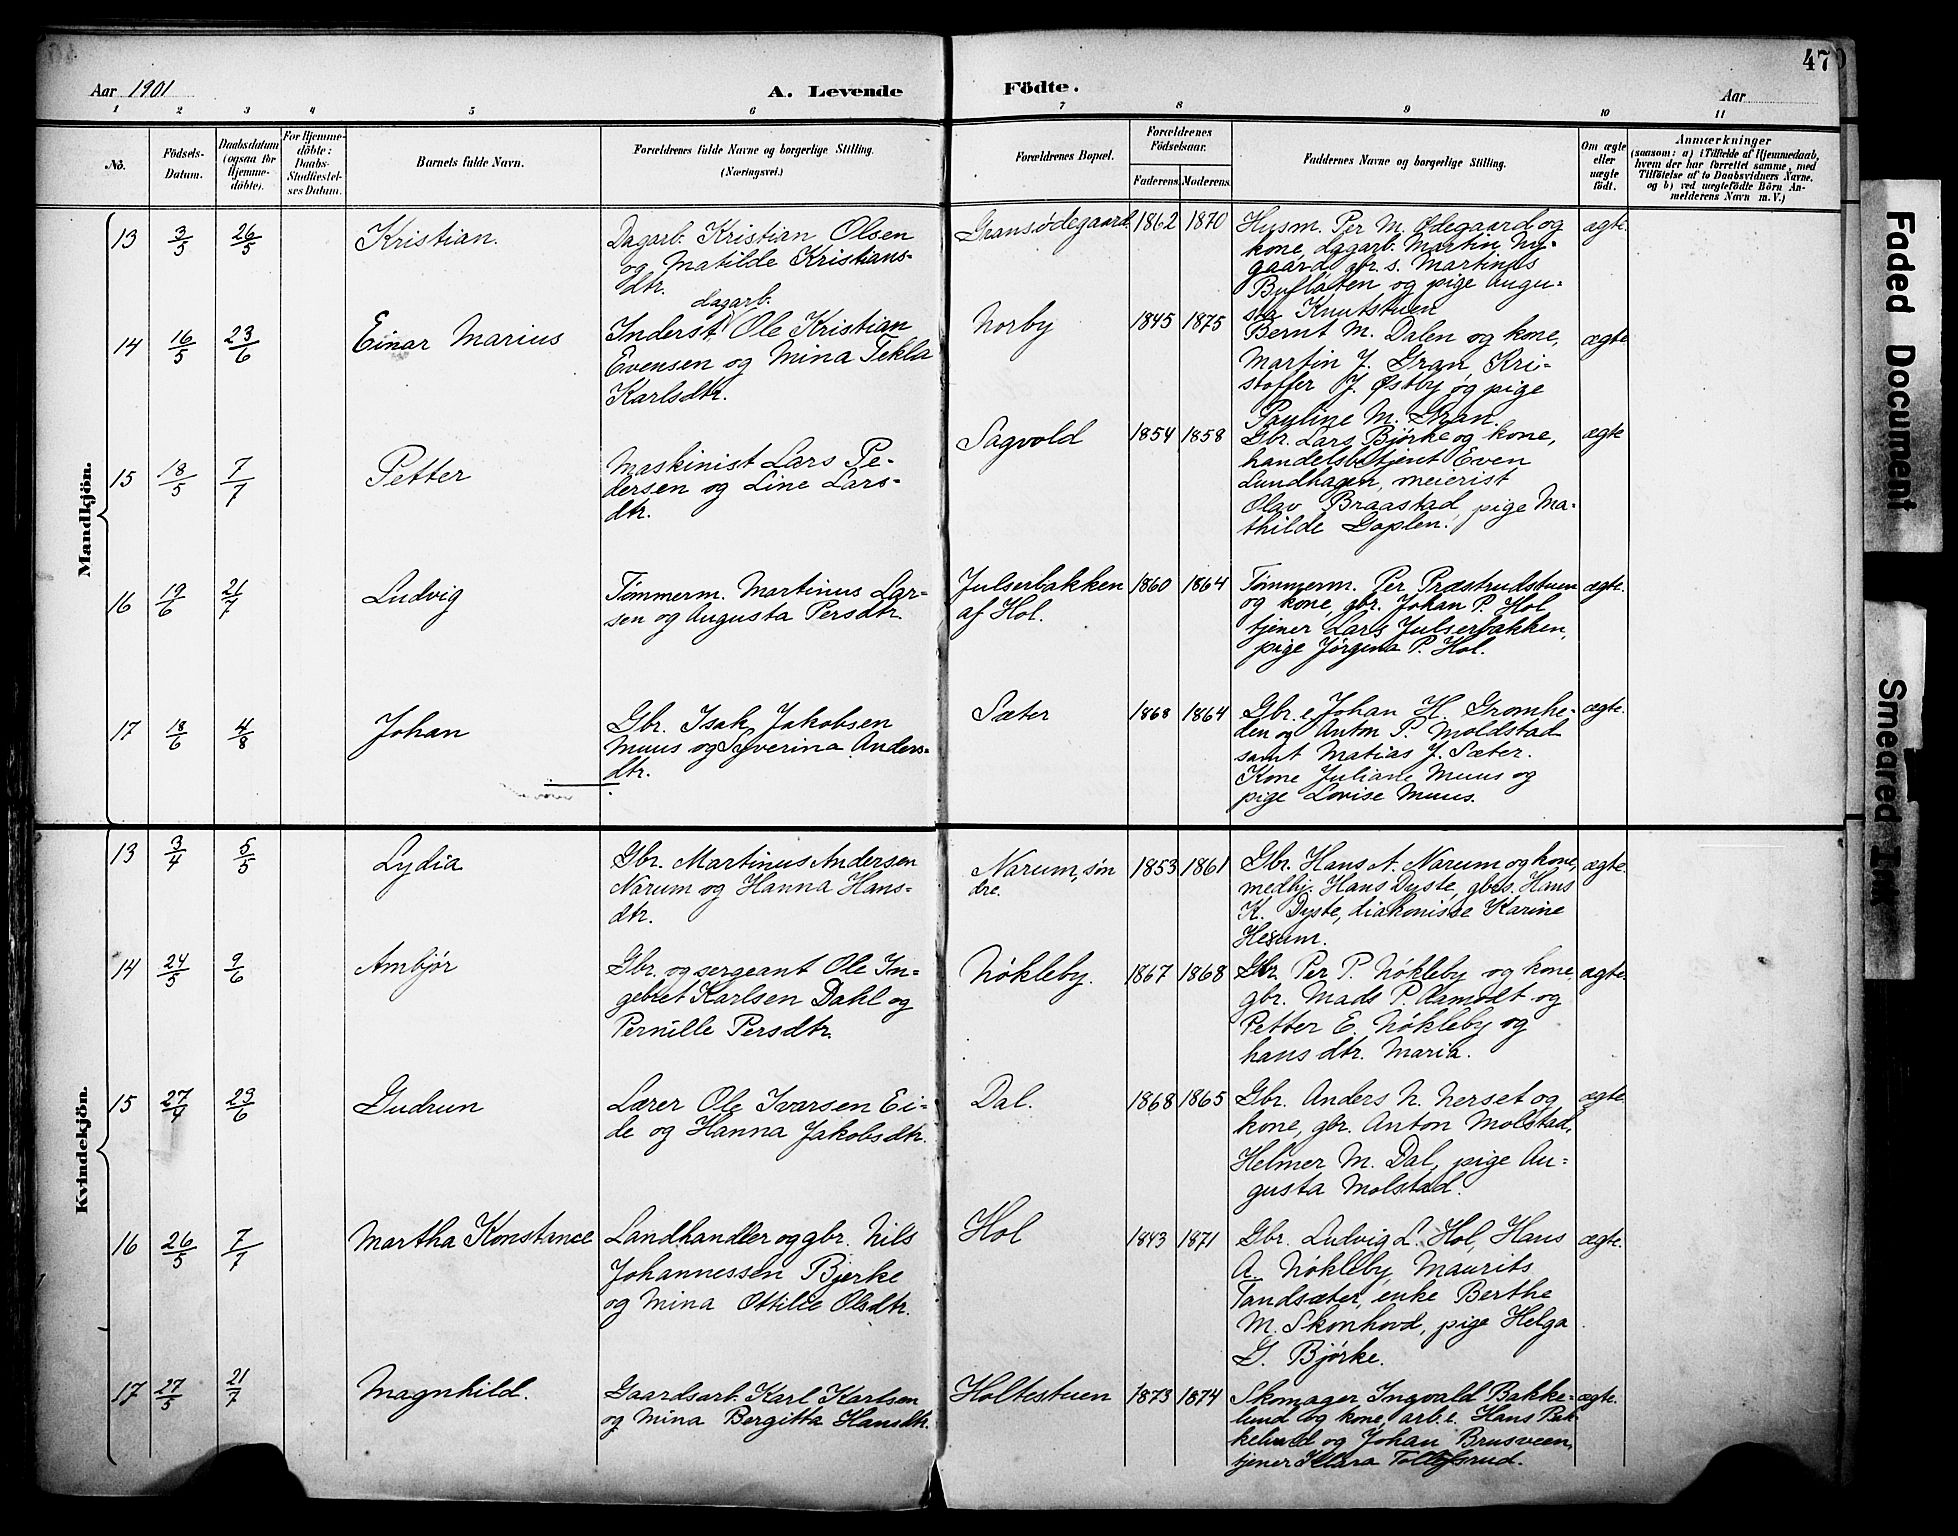 47
Aar 1901
A. Levende Födte.
Aar
1 2 3 4 5 6 7 8 9 10 11
No.
Födsels-
Datum.
Daabsdatum
(ogsaa for
Hjemme-
döbte).
For Hjemme-
döbte:
Daabs-
Stadfæstel-
ses Datum.
Barnets fulde Navn.
Forældrenes fulde Navne og borgerlige Stilling.
(Næringsvei.)
Forældrenes Bopæl.
Forældrenes
Födselsaar.
Faderens. Moderens.
Faddernes Navne og borgerlige Stilling.
Om ægte
eller
uægte
födt.
Anmærkninger
(saasom: a) i Tilfælde af Hjemmedaab,
hvem der har forrettet samme, med
Tilföielse af to Daabsvidners Navne,
og b) ved uægtefödte Börn An-
melderens Navn m. V.)
Mandkjön.
13 3/5 26/5 Kristian.
Dagarb. Kristian Olsen
og Matilde Kristians-
dtr.
Gransødegaard 1862 1870
Husm. Per M. Ødegaard og
kone, dagarb. Martin Ny-
gaard, gbr.s. Martinus
Bufladten og pige Augu-
sta Knutstuen
ægte.
14 16/5 23/6 Einar Marius
dagarb.
Inderst, Ole Kristian
Evensen og Mina Tekla
Karlsdtr.
Norby 1845 1875
Bernt M. Dalen og kone,
Martin J. Gran, Kri-
stoffer J. Østby og pige
Pauline M. Gran.
ægte
15 18/5 7/7 Petter
Maskinist Lars Pe-
dersen og Line Lars-
dtr.
Sagvold 1854 1858
Gbr. Lars Bjørke og kone,
handelsbetjent Even
Lundhagen, meierist
Olav Braastad, pige Ma-
thilde Goplen.
ægte
16 19/6 21/7 Ludvig
Tømmerm. Martinus Lar-
sen og Augusta Persdtr.
Julserbakken
af Hol.
1860 1864
Tømmerm. Per Præstrudstuen
og kone, gbr. Johan P. Hol
tjener Lars Julserbakken,
pige Jørgina P. Hol.
ægte.
17 18/6 4/8 Johan
Gbr. Isak Jakobsen
Muus og Syverina Anders-
dtr.
Sæter 1868 1864
Gbr. e. Johan H. Gromhe-
den og Anton P. Moldstad
samt Matias J. Sæter.
Kone Juliane Muus og
pige Lovise Muus.
ægte.
Kvindekjön.
13 3/4 5/5 Lydia
Gbr. Martinus Andersen
Narum og Hanna Hans-
dtr.
Narum, søn
dre.
1853 1861
Gbr. Hans A. Narum og kone,
medhj. Hans Dyste, gbrs. Hans
K. Dyste, diakonisse Karine
Hesum.
ægte.
14 24/5 9/6 Ambjør
Gbr. og sergeant Ole In-
gebret Karlsen Dahl og
Pernille Persdtr.
Nøkleby. 1867 1868
Gbr. Per P. Nøkleby og kone,
gbr. Mads P. Aamodt og
Petter E. Nøkleby og
hans dtr. Maria.
ægte.
15 27/4 23/6 Gudrun
Lærer Ole Ivarsen Ei-
de og Hanna Jakobsdtr.
Dal. 1868 1865
Gbr. Anders N. Nerset og
kone, gbr. Anton Molstad,
Helmer M. Dal, pige Au-
gusta Molstad.
ægte.
16 26/5 7/7 Martha Konstance
Landhandler og gbr. Nils
Johannessen Bjerke
og Mina Ottilie Olsdtr.
Hol 1843 1871
Gbr. Ludvig L. Hol, Hans
A. Nøkleby, Maurits
Tandsæter, enke Berthe
M. Skonhovd, pige Helga
G. Bjørke.
ægte.
17 27/5 21/7 Magnhild.
Gaardsarb. Karl Karlsen
og Mina Bergitta Hansdtr.
Holtestuen 1873 1874
Skomager Ingvald Bakke-
lund og kone, arb. e. Hans Bak-
kelund og Johan Brusveen,
tjener Klara Tollefsrud.
ægte.
Faded Document
Smeared Ink